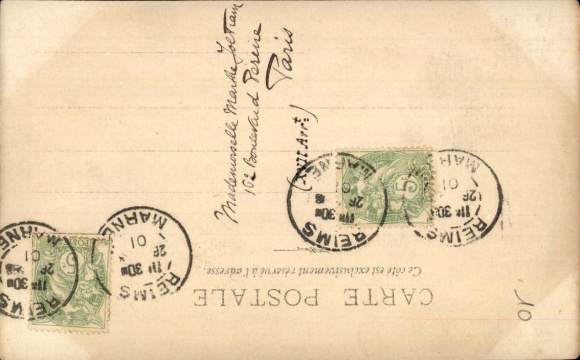 CARTE POSTALE
Ce côté est exclusivement réservé à l'adresse
REIMS
MARNE
11H 30M
26
01
REIMS
MARNE
11H 30M
26
01
REIMS
MARNE
11H 30M
26
01
REIMS
MARNE
11H 30M
26
01
5
5
Mademoiselle
102 Boulevard Pereire
Paris
(XVII Arrt)